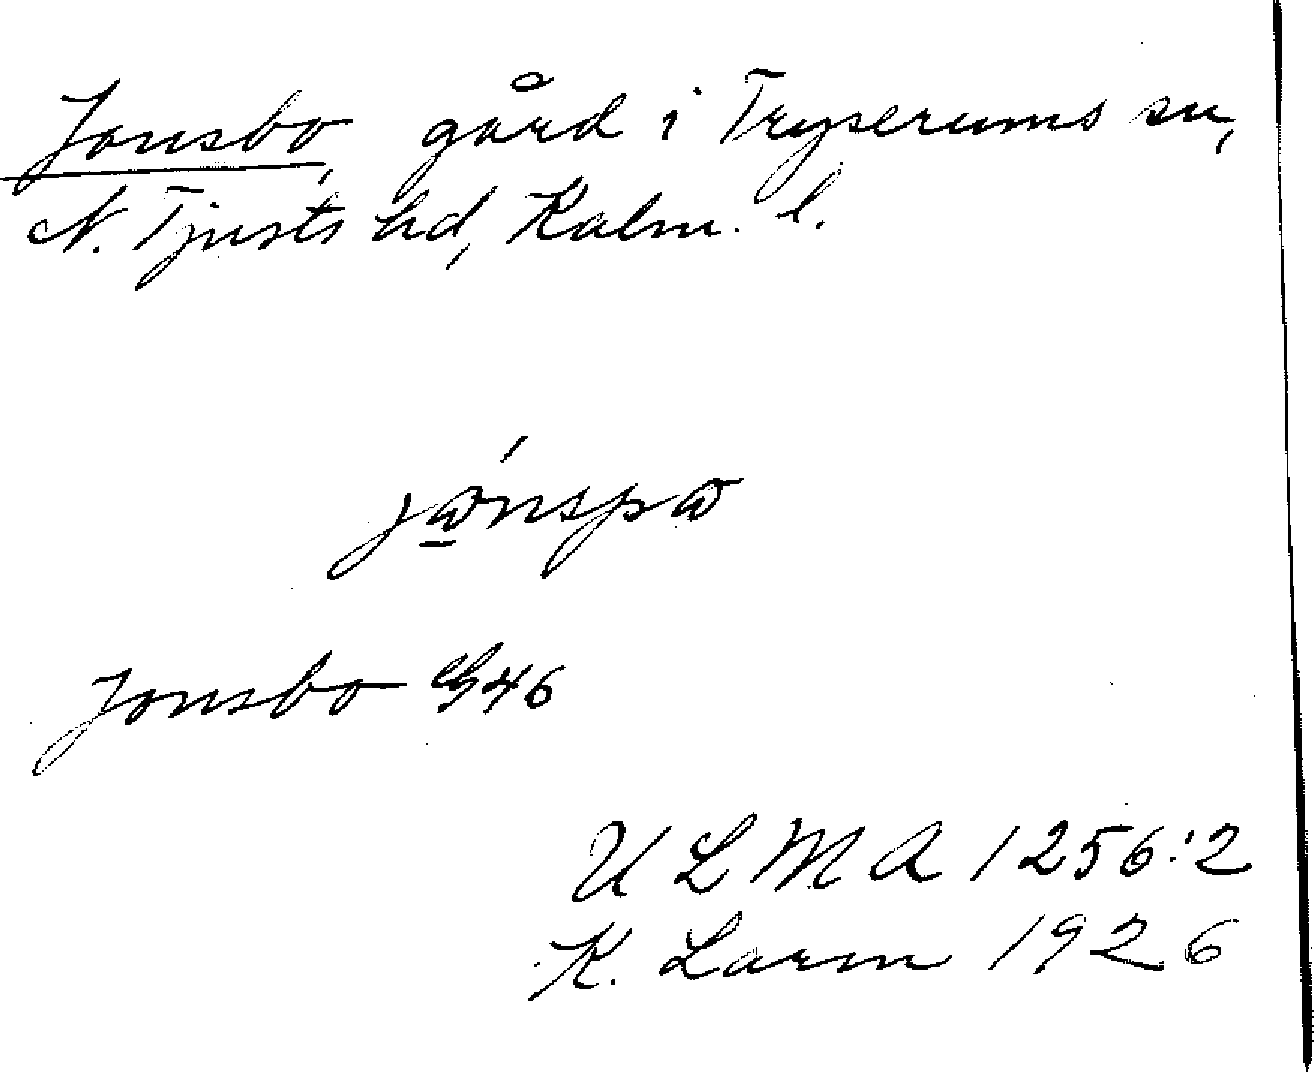 Jonsbo, gård i Tryserums sn,
N. Tjusts hd, Kalm. l.
Jonsbo G46
U L M A 1256:2
K. Larm 1926